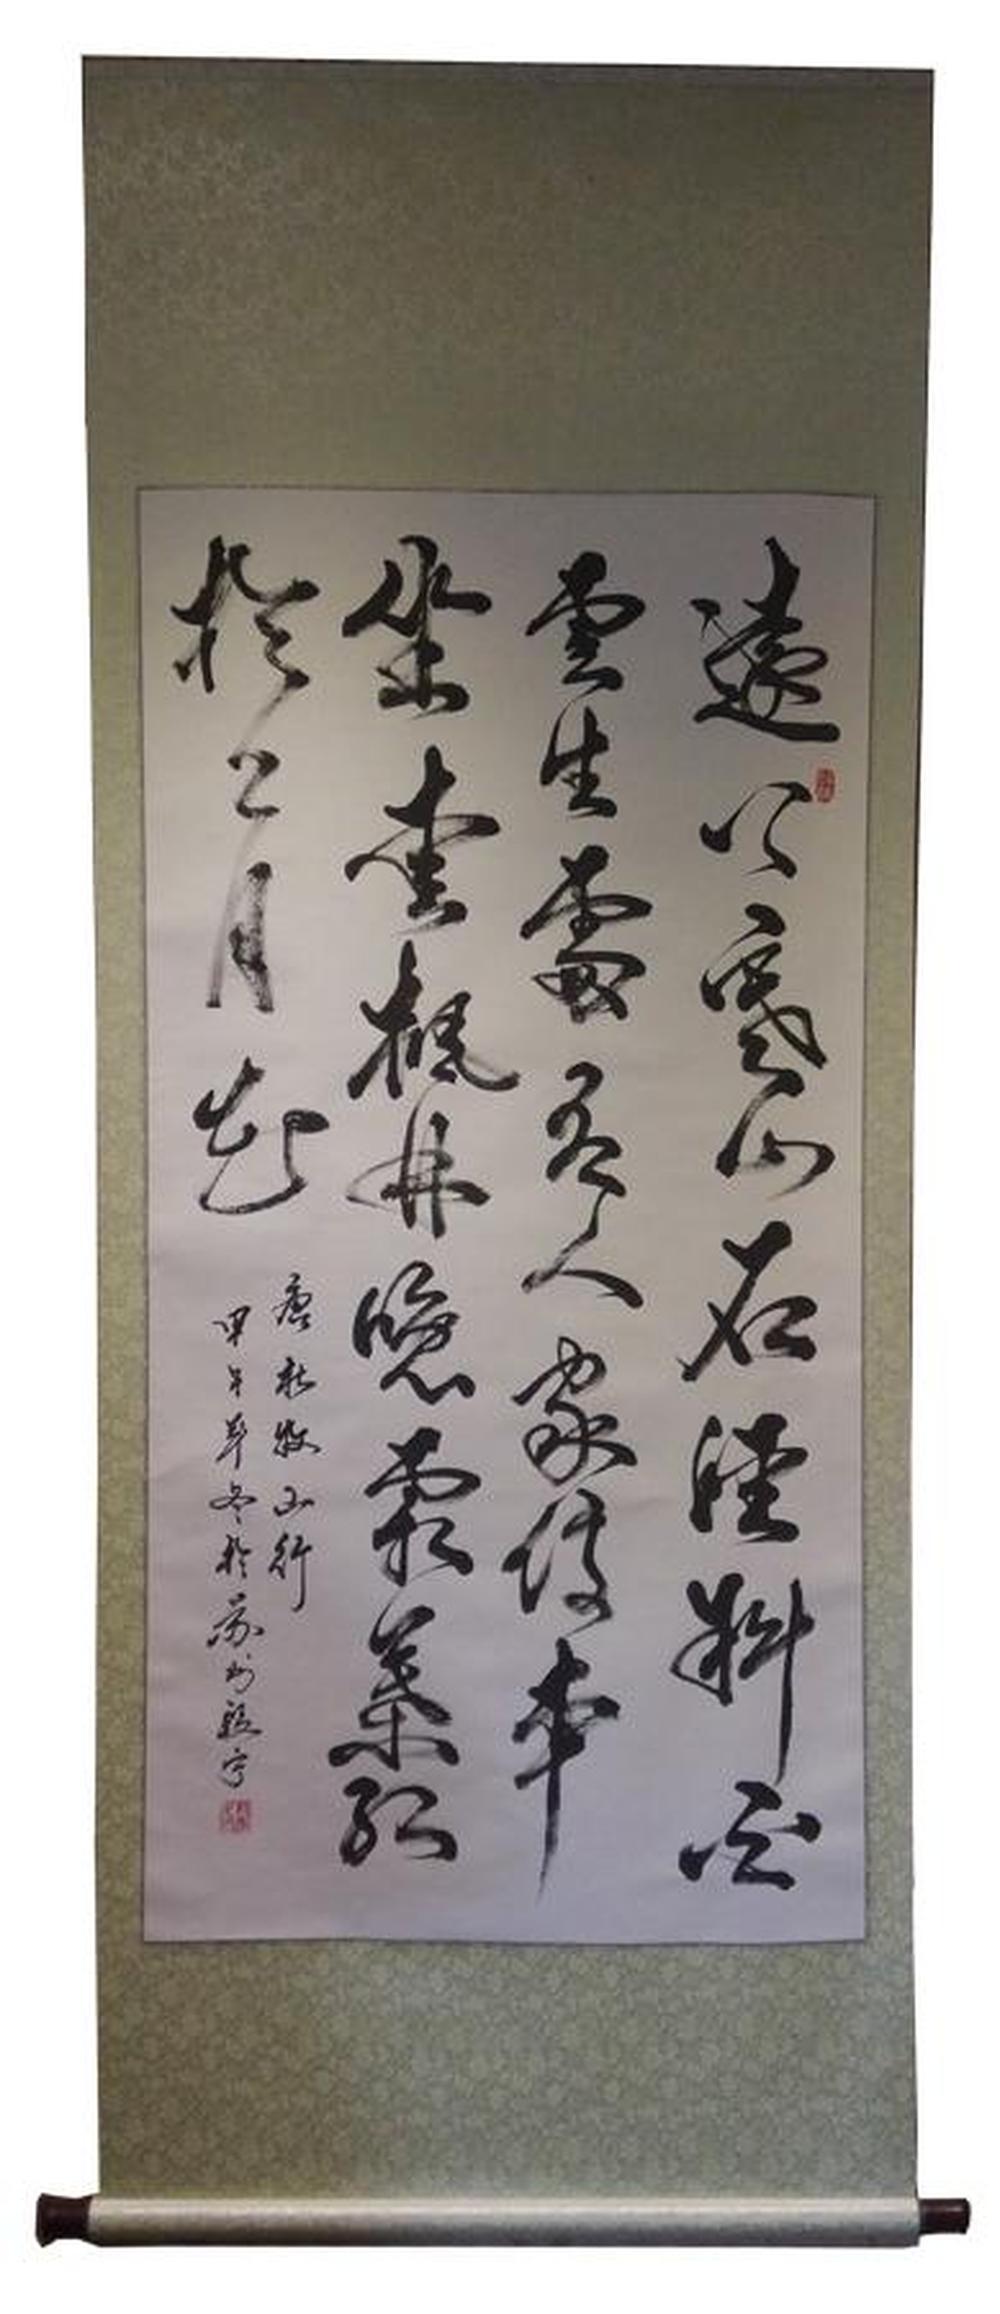 遠上寒山石徑斜白
雲生處有人家停車
坐愛楓林晚霜葉紅
於二月花
唐杜牧山行
甲午年冬於蘇州